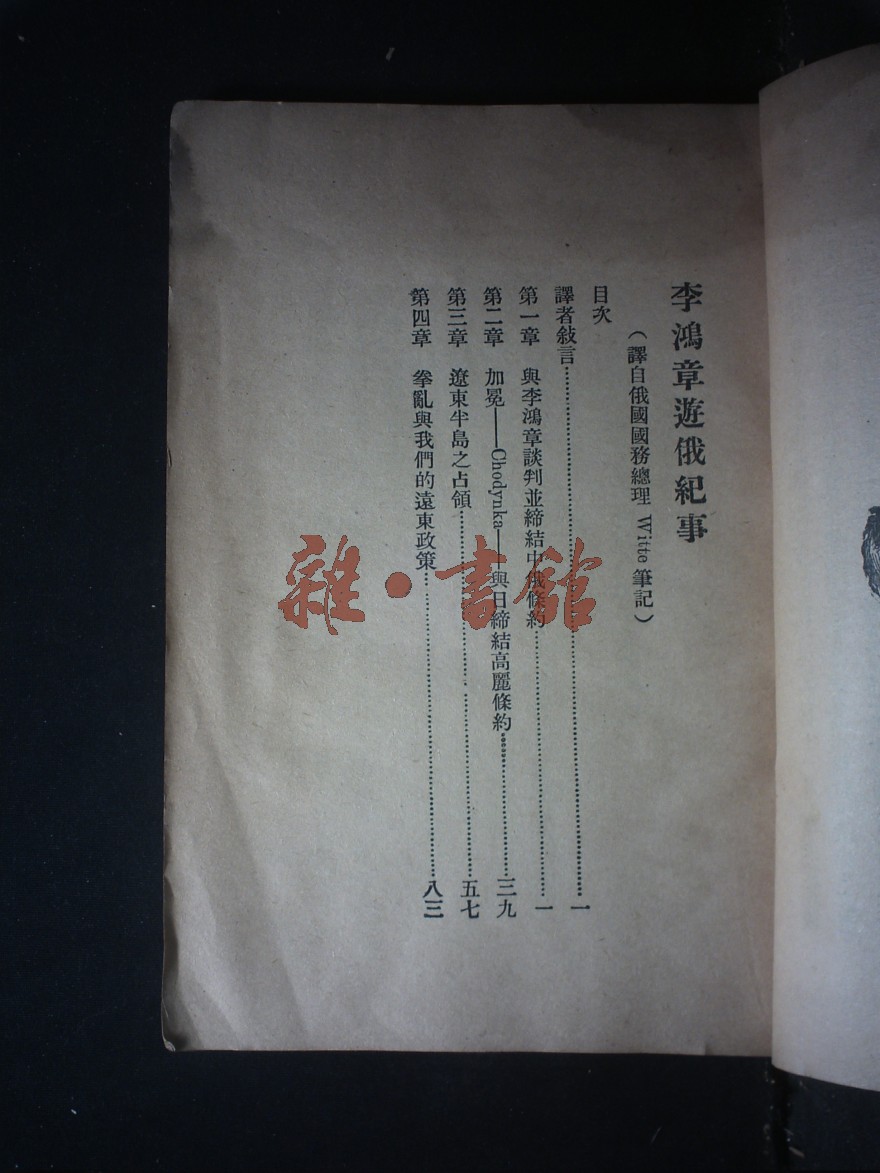 李鴻章遊俄紀事
（譯自俄國國務總理 Witte 筆記）
目次
譯者敍言……一
第一章　與李鴻章談判並締結中俄條約……一
第二章　加冕——Chodynka——與日締結高麗條約……三九
第三章　遼東半島之占領……五七
第四章　拳亂與我們的遠東政策……八三
雜·書館